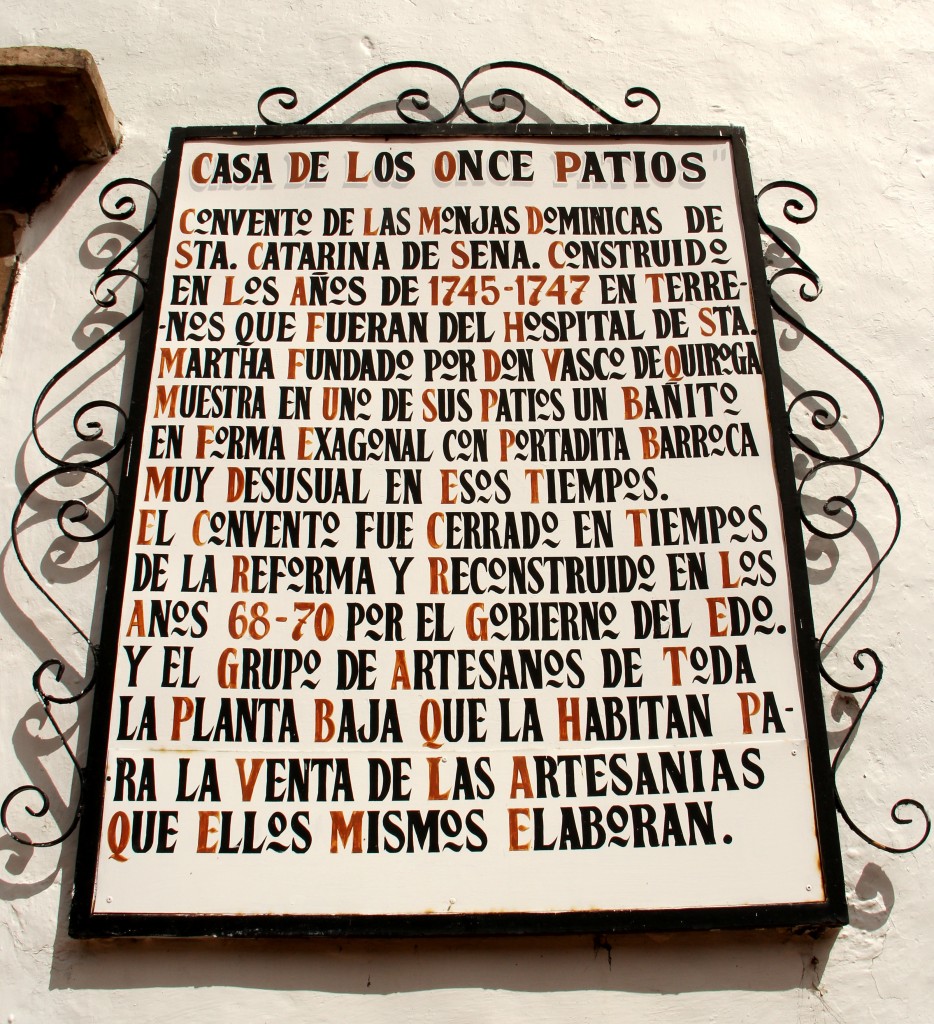 CASA DE LOS ONCE PATIOS"
CONVENTO DE LAS MONJAS DOMINICAS DE
STA. CATARINA DE SENA. CONSTRUIDO
EN LOS AÑOS DE 1745-1747 EN TERRE-
-NOS QUE FUERAN DEL HOSPITAL DE STA.
MARTHA FUNDADO POR DON VASCO DE QUIROGA
MUESTRA EN UNO DE SUS PATIOS UN BAÑITO
EN FORMA EXAGONAL CON PORTADITA BARROCA
MUY DESUSUAL EN ESOS TIEMPOS.
EL CONVENTO FUE CERRADO EN TIEMPOS
DE LA REFORMA Y RECONSTRUIDO EN LOS
ANOS 68-70 POR EL GOBIERNO DEL EDO.
Y EL GRUPO DE ARTESANOS DE TODA
LA PLANTA BAJA QUE LA HABITAN PA-
·RA LA VENTA DE LAS ARTESANIAS
QUE ELLOS MISMOS ELABORAN.